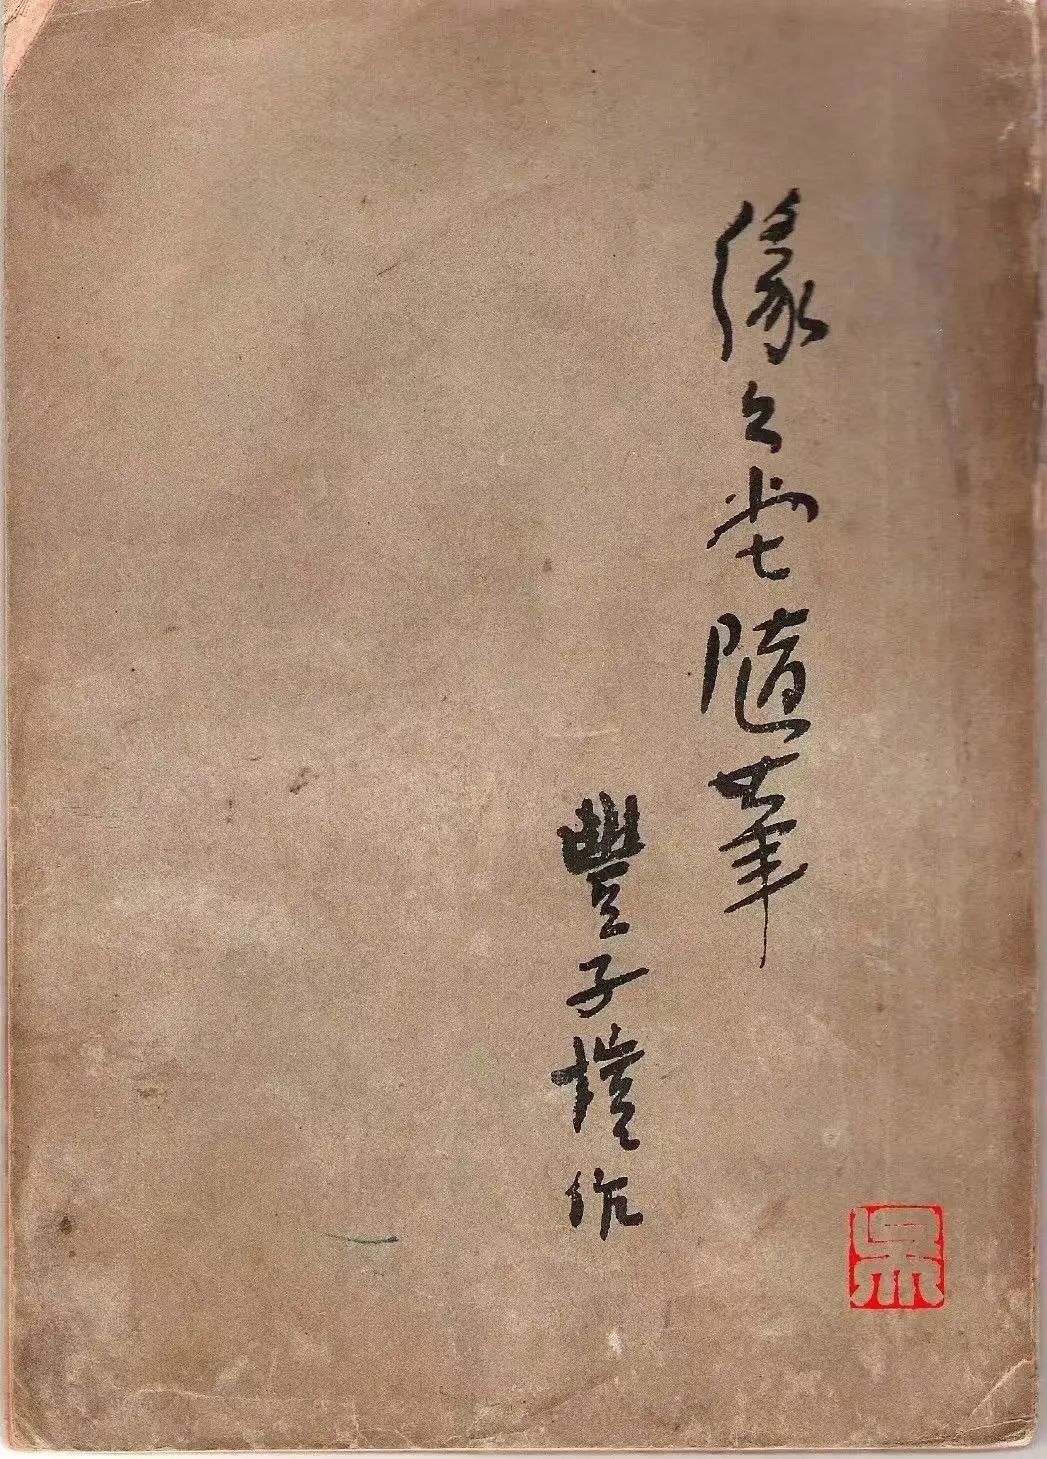 緣々堂隨筆
豐子愷作